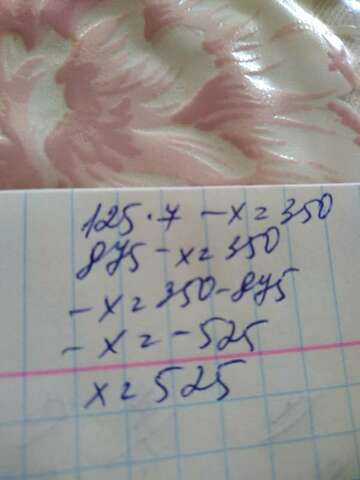 125·7 - x = 350
875 - x = 350
- x = 350 - 875
- x = - 525
x = 525